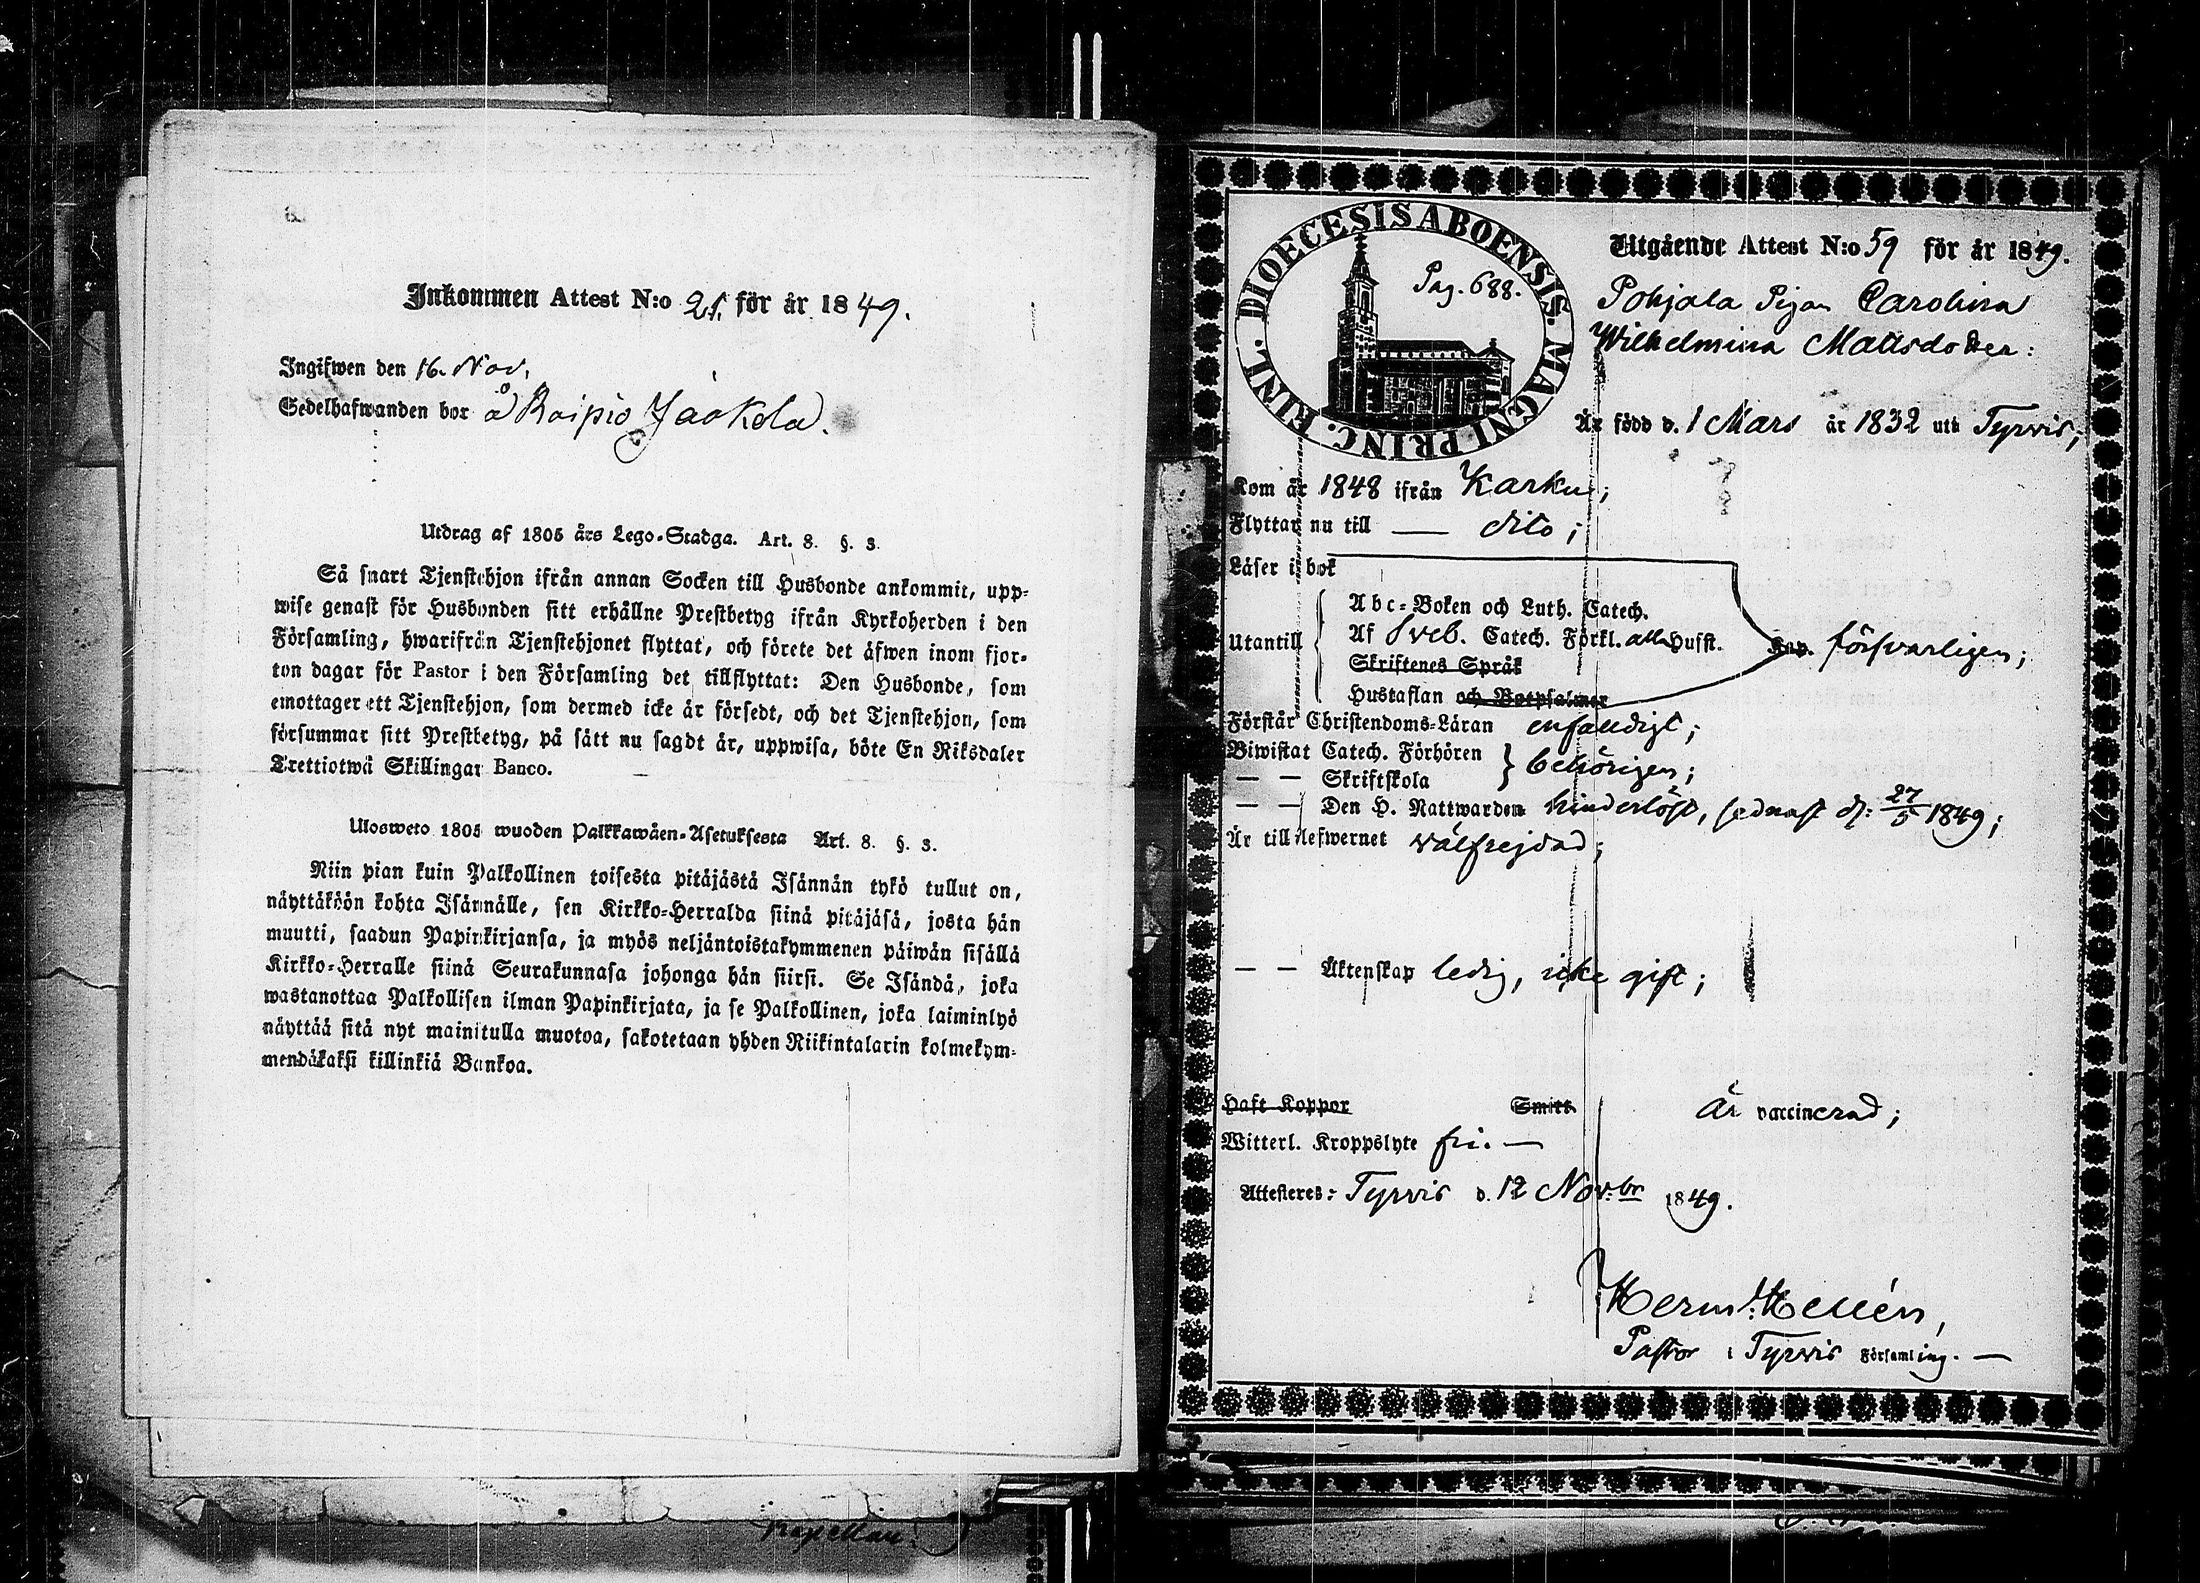 Inkommen Attest N:o 21. för år 1849.
Ingifwen den 16. Nov.
Sedelhafwanden bor å Roipio Jaakola.
Utdrag af 1805 års Lego-Stadga. Art. 8. §. 3.
Så snart Tjenstehjon ifrån annan Socken till Husbonde ankommit, upp-
wise genast för Husbonden sitt erhållne Prestbetyg ifrån Kyrkoherden i den
Församling, hwarifrån Tjenstehjonet flyttat, och förete det äfwen inom fjor-
ton dagar för Pastor i den Församling det tillflyttat: Den Husbonde, som
emottager ett Tjenstehjon, som dermed icke är försedt, och det Tjenstehjon, som
försummar sitt Prestbetyg, på sätt nu sagdt är, uppwisa, böte En Riksdaler
Trettiotwå Skillingar Banco.
Ulosweto 1805 wuoden Palkkawäen-Asetuksesta Art. 8. §. 3.
Niin pian kuin Palkollinen toisesta pitäjästä Isännän tykö tullut on,
näyttäköön kohta Isännälle, sen Kirkko-Herralda siinä pitäjäsä, josta hän
muutti, saadun Papinkirjansa, ja myös neljäntoistakymmenen päiwän sisällä
Kirkko-Herralle siinä Seurakunnasa johonga hän siirsi. Se Isändä, joka
wastanottaa Palkollisen ilman Papinkirjata, ja se Palkollinen, joka laiminlyö
näyttää sitä nyt mainitulla muotoa, sakotetaan yhden Riikintalarin kolmekym-
mendäkaksi killinkiä Bankoa.
Kapellan.
DIOECESIS ABOENSIS. MAGNI PRINC. FINL.
Pag. 688.
Utgående Attest N:o 59 för år 1849.
Pohjala Pigan Carolina
Wilhelmina Mattsdotter:
Är född d. 1 Mars år 1832 uti Tyrvis;
Kom år 1848 ifrån Karku;
Flyttar nu till — dito;
Läser i bok
Utantill
Abc-Boken och Luth. Catech.
Af Sveb. Catech. Förkl. alla Hufst.
Skriftenes Språk
Hustaflan och Botpsalmer
försvarligen;
Förstår Christendoms-Läran enfalldigt;
Biwistat Catech. Förhören
— — Skriftskola
behörigen;
— — Den H. Nattwarden hinderlöst, sednast d. 27/5 1849;
Är till lefwernet wälfrejdad;
— — Äktenskap ledig, icke gift;
Haft Koppor Smitt. Är vaccinerad;
Witterl. Kroppslyte fri. —
Attesteres: Tyrvis d. 12 Nov:br 1849.
Herm. Hellén,
Pastor i Tyrvis Församling. —